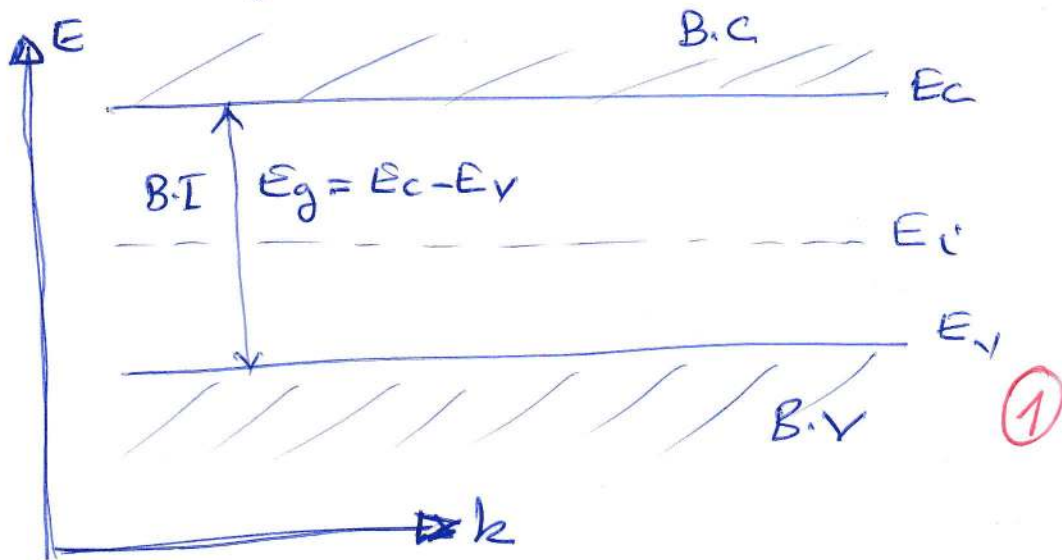 E
B.C
Ec
B.I Eg = Ec - Ev
Ei
Ev
B.V
1
k